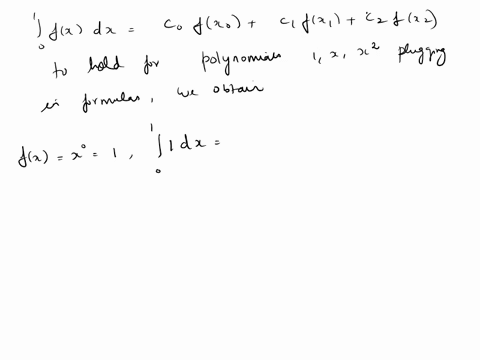 ∫₀¹ f(x) dx = c₀ f(x₀) + c₁ f(x₁) + c₂ f(x₂)
to hold for polynomials 1, x, x² plugging
in formulas, we obtain
f(x) = x⁰ = 1 , ∫₀¹ 1 dx =